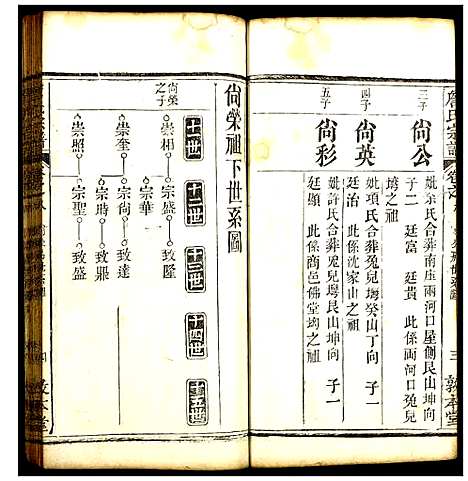 詹氏宗譜
三子
尙公
妣余氏合葬南座兩河口屋側艮山坤向
子二 廷富 廷貴 此係兩河口兔兒
塆之祖
四子
尙英
妣項氏合葬兔兒塆癸山丁向 子一
廷治 此係沈家山之祖
五子
尙彩
妣許氏合葬兔兒塆艮山坤向 子一
廷顯 此係商邑佛堂塆之祖
三
敦本堂
尙榮祖下世系圖
尙榮之子
十一世
十二世
十三世
十四世
十五世
崇相
宗盛
致隆
宗華
崇奎
宗尙
致達
宗時
致鼎
崇照
宗聖
致盛
敦本堂